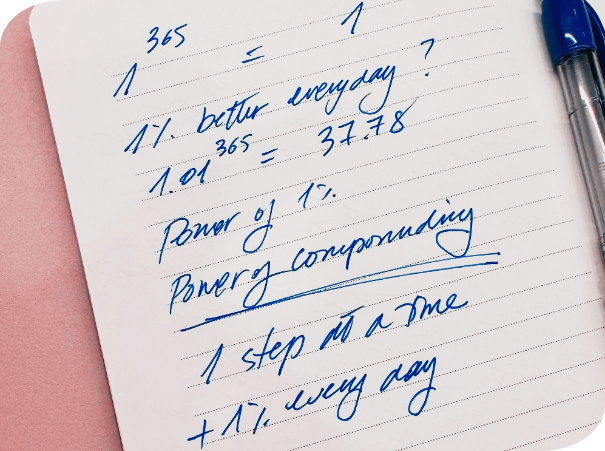 1^365 = 1
1% better everyday?
1.01^365 = 37.78
Power of 1%
Power of compounding
1 step at a time
+1% every day